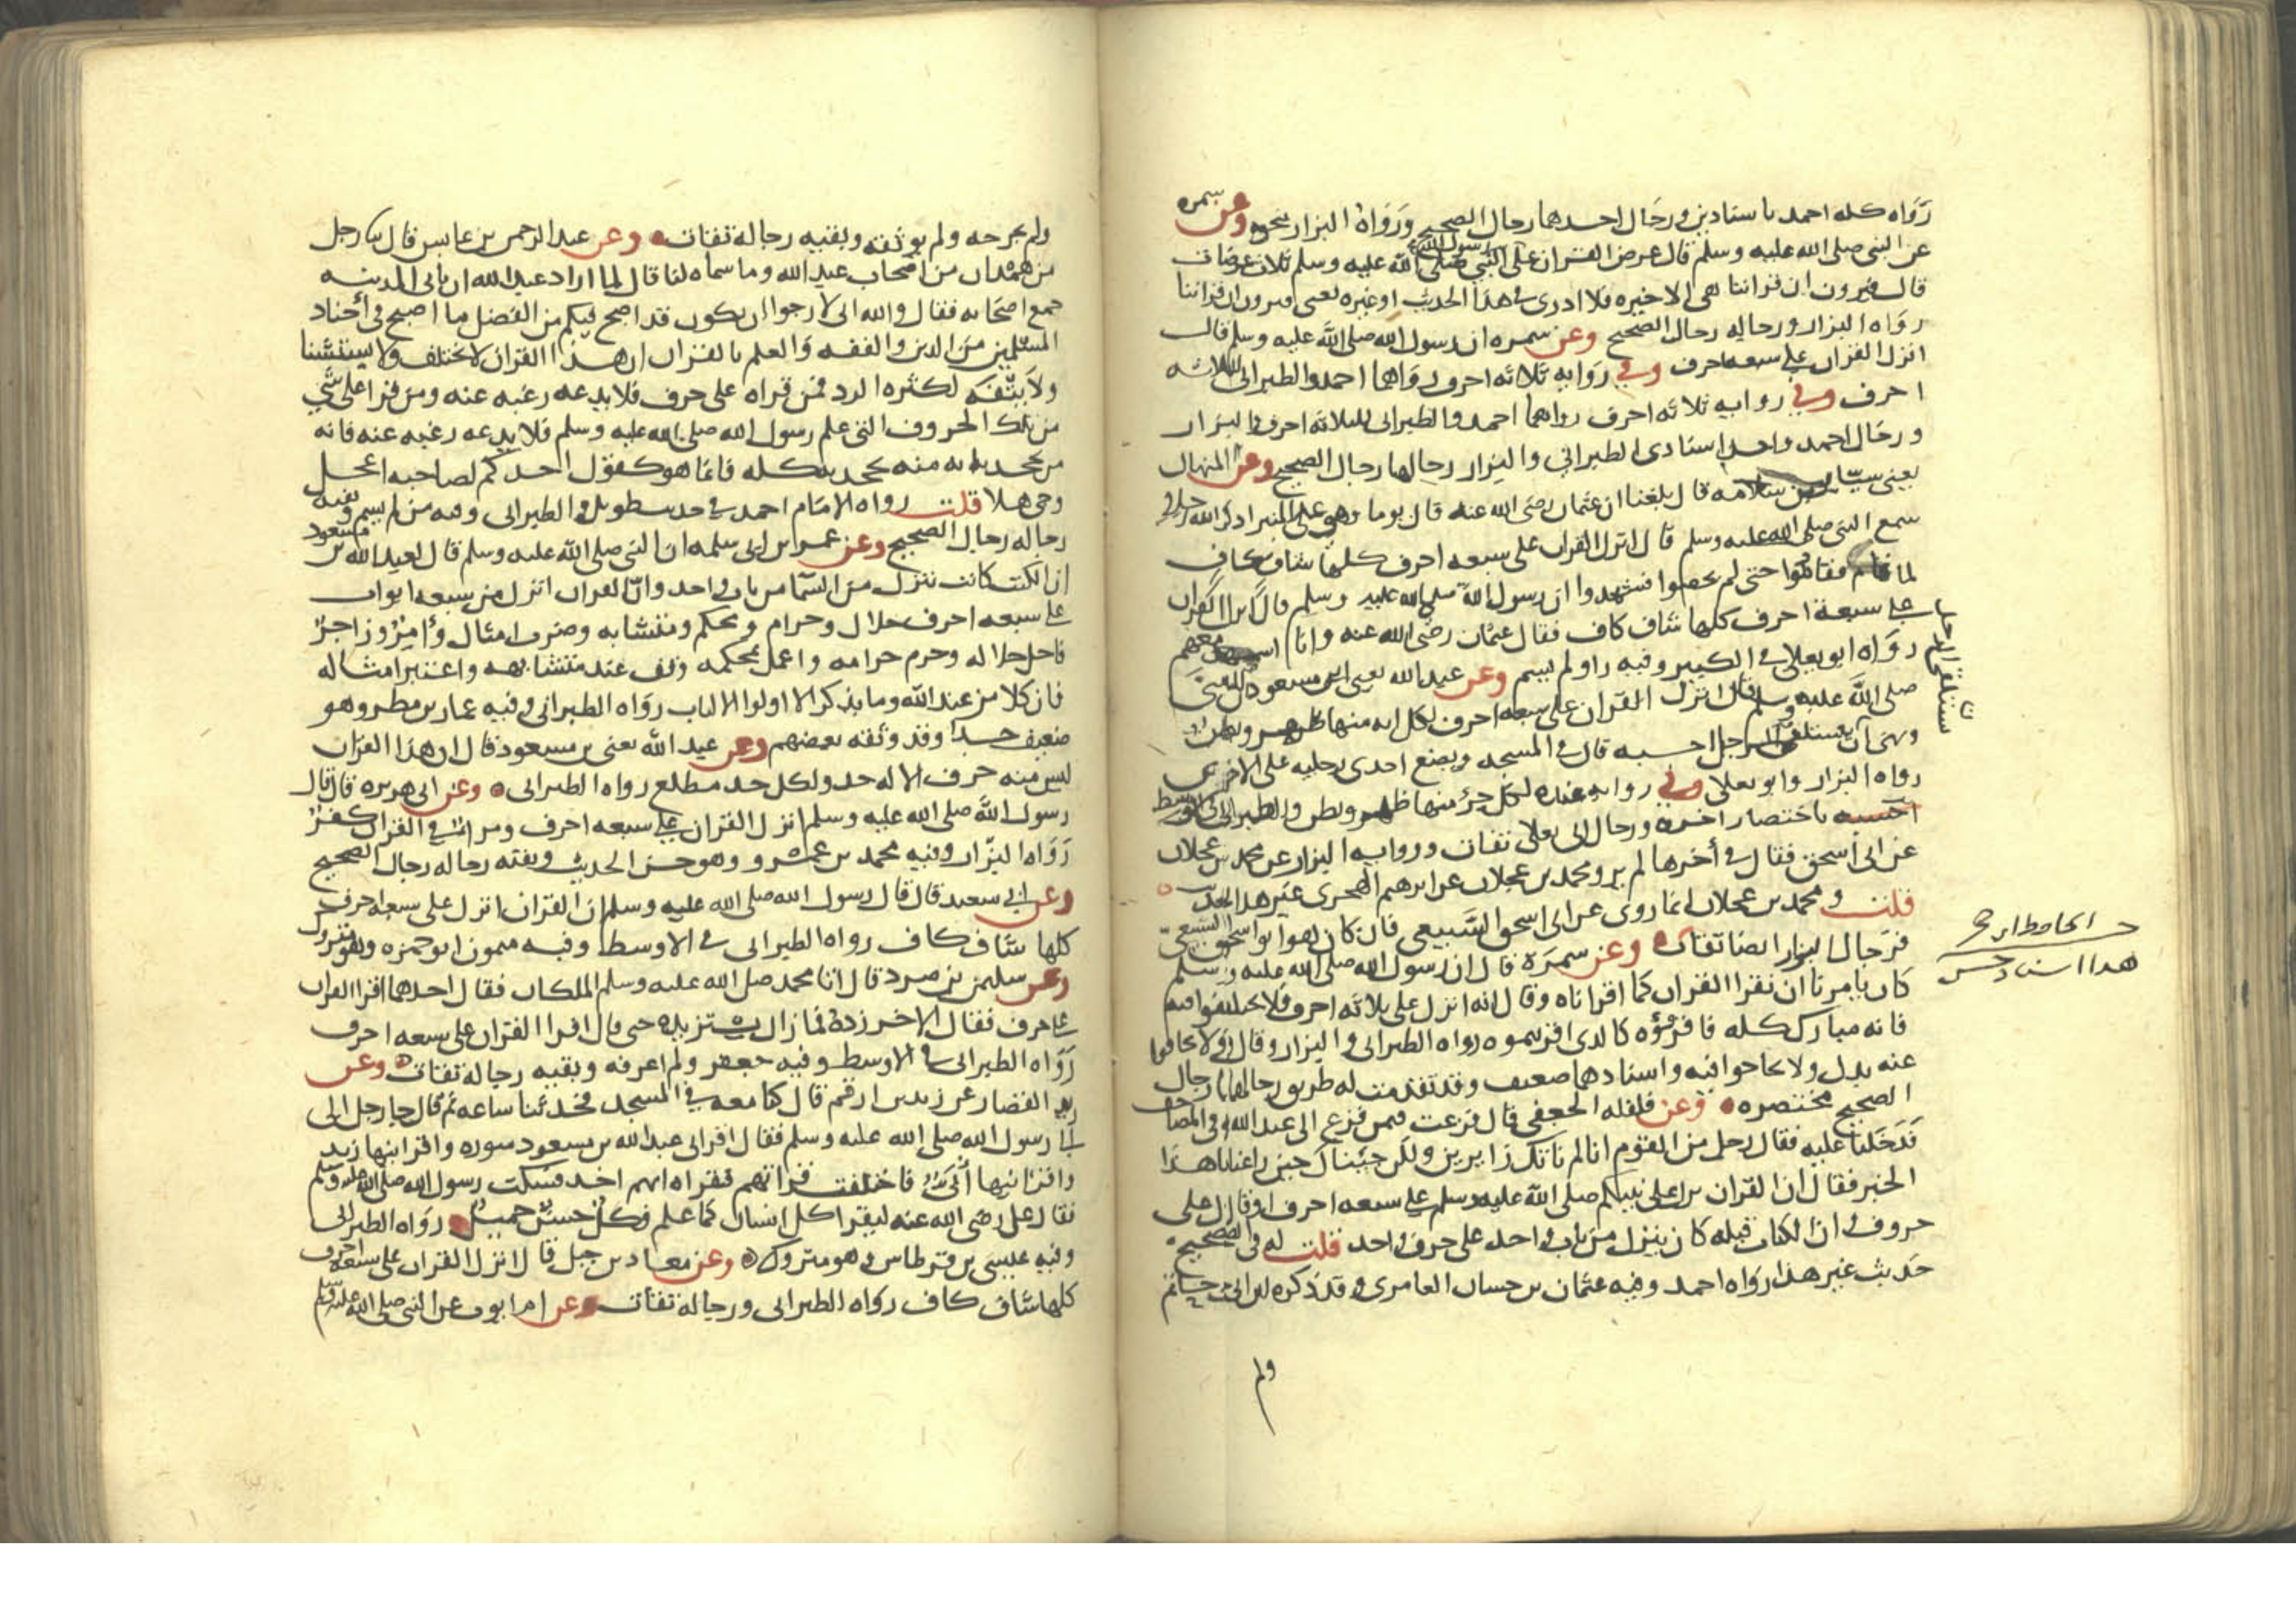 رواه كله احمد باسنادين ورجال احدهما رجال الصحيح ورواه البزار بنحوه وعن سمره
عن النبي صلى الله عليه وسلم قال عرض القران على رسول الله صلى الله عليه وسلم ثلاث عرضات
قال فيرون ان قراتنا هي الاخيره فلا ادرى في هذا الحديث او غيره يعني فيرون ان قراتنا
رواه البزار ورجاله رجال الصحيح وعن سمره ان رسول الله صلى الله عليه وسلم قال
انزل القران على سبعه احرف وفي روايه ثلاثه احرف رواهما احمد والطبراني الثلاثه
احرف وفي روايه ثلاثه احرف رواهما احمد والطبراني الثلاثه احرف والبزار
ورجال احمد واحد اسنادى الطبراني والبزار رجالها رجال الصحيح وعن المنهال
يعني سيار بن سلامه قال بلغنا ان عثمان رضى الله عنه قال يوما وهو على المنبر اذكر الله رجلا
سمع النبي صلى الله عليه وسلم قال انزل القران على سبعه احرف كلها شاف كاف
لما قام فقاموا حتى لم يحصوا فشهدوا ان رسول الله صلى الله عليه وسلم قال انزل القران
على سبعة احرف كلها شاف كاف فقال عثمان رضى الله عنه وانا اشهد معهم
رواه ابو يعلى في الكبير وفيه راو لم يسم وعن عبد الله يعني ابن مسعود ان النبي
صلى الله عليه وسلم قال انزل القران على سبعه احرف لكل ايه منها ظهر وبطن
ونهى ان يستلقي الرجل احسبه قال في المسجد ويضع احدى رجليه على الاخرى
رواه البزار وابو يعلى وفي روايه عنده لكل حرف منها ظهر وبطن والطبراني في الاوسط
باختصار اخره ورجال ابى يعلى ثقات وروايه البزار عن محمد بن عجلان
عن ابى اسحق فقال في أخرها لم يرو محمد بن عجلان عن ابرهيم الهجرى غير هذا الحديث
قلت ومحمد بن عجلان انما روى عن ابى اسحق السبيعي فان كان هو ابو اسحق السبيعي
فرجال البزار ايضا ثقات وعن سمرة قال ان رسول الله صلى الله عليه وسلم
كان يامرنا ان نقرا القران كما اقراناه وقال انه انزل على ثلاثه احرف فلا تختلفوا فيه
فانه مبارك كله فاقرؤه كالذى اقريتموه رواه الطبراني والبزار وقال ولا تجافوا
عنه بدل ولا تحاجوا فيه واسنادهما ضعيف وقد تقدمت له طريق رجالها رجال
الصحيح مختصره وعن فلفله الجعفي قال فزعت فيمن فزع الى عبد الله في المصاحف
فدخلنا عليه فقال رجل من القوم انا لم ناتك زايرين ولكن جيناك حين راعنا هذا
الخبر فقال ان القران نزل على نبيكم صلى الله عليه وسلم على سبعه احرف او قال على
حروف وان الكتاب قبله كان ينزل من باب واحد على حرف واحد قلت له في الصحيح
حديث غير هذا رواه احمد وفيه عثمان بن حسان العامرى وقد ذكره ابن ابى حاتم
ولم
الحافظ ابن حجر
هذا اسناد حسن
ولم يجرحه ولم يوثقه وبقيه رجاله ثقات وعن عبد الرحمن بن عابس قال ثنا رجل
من همدان من اصحاب عبد الله وما سماه لنا قال لما اراد عبد الله ان ياتى المدينه
جمع اصحابه فقال والله انى لارجوا ان يكون قد اصبح فيكم من افضل ما اصبح في أجناد
المسلمين من الدين والفقه والعلم بالقران ان هذا القران لا يختلف ولا يستشنا
ولا يتفه لكثره الرد فمن قراه على حرف فلا يدعه رغبه عنه ومن قرا على شي
من تلك الحروف التي علم رسول الله صلى الله عليه وسلم فلا يدعه رغبه عنه فانه
من يجحد بايه منه يجحد به كله فانما هو كقول احدكم لصاحبه اعجل
وحي هلا قلت رواه الامام احمد في حديث طويل والطبراني وفيه من لم يسم وبقيه
رجاله رجال الصحيح وعن عمر بن ابى سلمه ان النبي صلى الله عليه وسلم قال لعبد الله بن مسعود
ان الكتب كانت تنزل من السما من باب واحد وان القران انزل من سبعه ابواب
على سبعه احرف حلال وحرام ومحكم ومتشابه وضرب امثال وأمر وزاجر
فاحل حلاله وحرم حرامه واعمل بمحكمه وقف عند متشابهه واعتبر امثاله
فان كلا من عند الله وما يذكر الا اولوا الالباب رواه الطبراني وفيه عمار بن مطر وهو
ضعيف جدا وقد وثقه بعضهم وعن عبد الله يعني بن مسعود قال ان هذا القران
ليس منه حرف الا له حد ولكل حد مطلع رواه الطبراني وعن ابى هريره قال قال
رسول الله صلى الله عليه وسلم انزل القران على سبعه احرف ومراء في القران كفر
رواه البزار وفيه محمد بن عمرو وهو حسن الحديث وبقيه رجاله رجال الصحيح
وعن ابي سعيد قال قال رسول الله صلى الله عليه وسلم ان القران انزل على سبعه احرف
كلها شاف كاف رواه الطبراني في الاوسط وفيه ميمون ابو حمزه وهو متروك
وعن سليمن بن صرد قال اتا محمد صلى الله عليه وسلم الملكان فقال احدهما اقرا القران
على حرف فقال الاخر زده فما زال يستزيده حتى قال اقرا القران على سبعه احرف
رواه الطبراني في الاوسط وفيه جعفر ولم اعرفه وبقيه رجاله ثقات وعن
زيد القصار عن زيد بن ارقم قال كنا معه في المسجد فحدثنا ساعه ثم قال جا رجل الى
رسول الله صلى الله عليه وسلم فقال اقرانى عبد الله بن مسعود سوره واقرانيها زيد
واقرانيها أبي فاختلفت قراتهم فقراه ايهم اخذ فسكت رسول الله صلى الله عليه وسلم
فقال على رضى الله عنه ليقرا كل انسان كما علم فكل حسن جميل رواه الطبراني
وفيه عيسى بن قرطاس وهو متروك وعن معاذ بن جبل قال انزل القران على سبعه احرف
كلها شاف كاف رواه الطبراني ورجاله ثقات وعن ام ايوب عن النبي صلى الله عليه وسلم